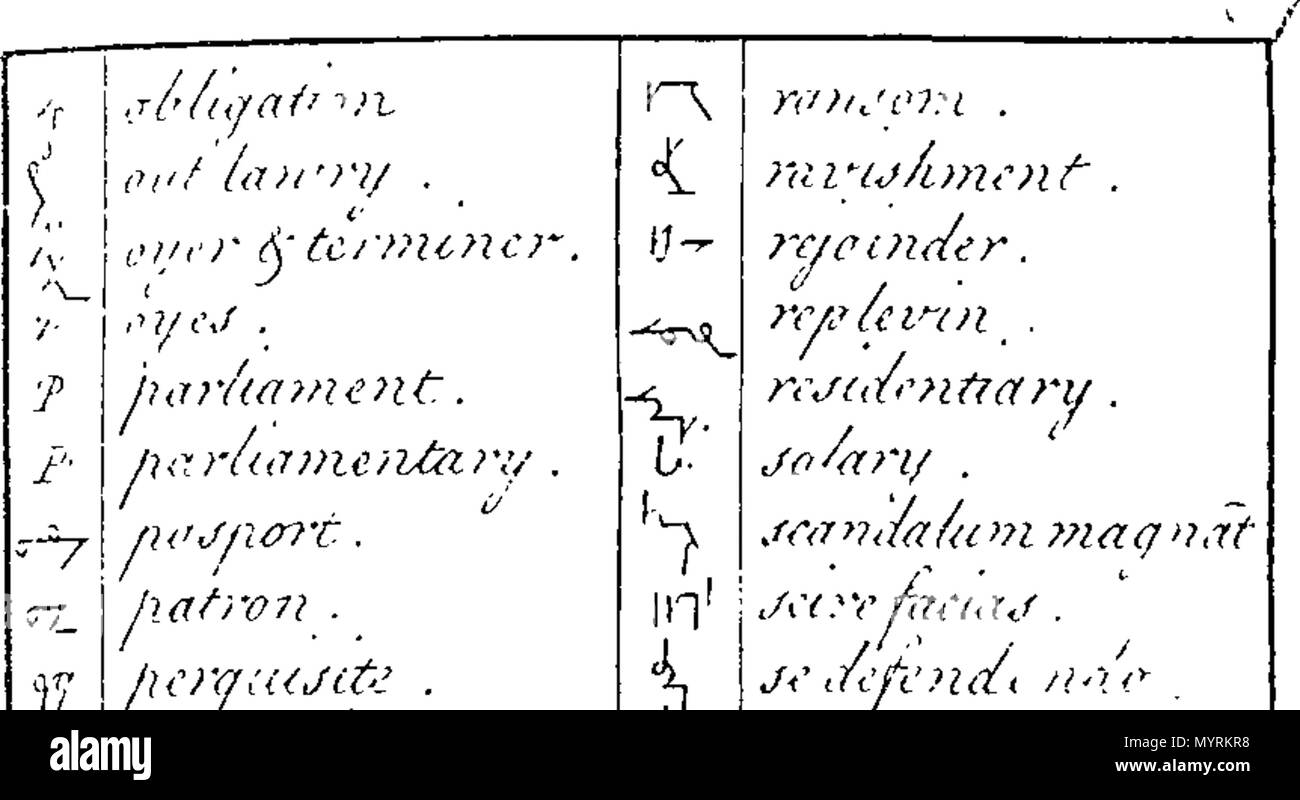 obligation
out lawry .
oyer & terminer .
oyes .
P parliament .
P. parliamentary .
pasport .
patron .
perquisite .
ransom .
ravishment .
rejoinder .
replevin .
residentiary .
salary .
scandalum magnāt
scire facias .
se defend
alamy
Image ID: MYRKR8
www.alamy.com